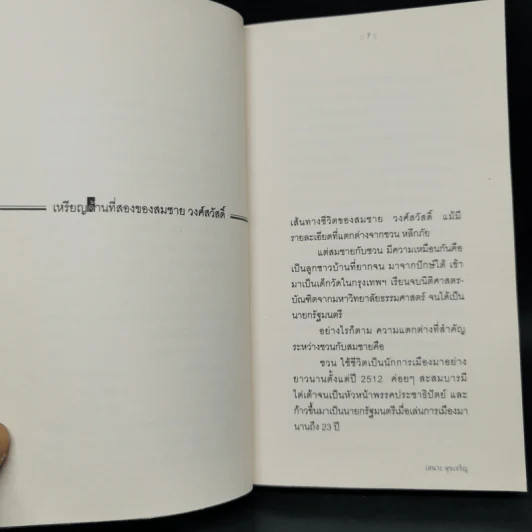 เหรียญด้านที่สองของสมชาย วงศ์สวัสดิ์
7
เส้นทางชีวิตของสมชาย วงศ์สวัสดิ์ แม้มี
รายละเอียดที่แตกต่างจากชวน หลีกภัย
แต่สมชายกับชวน มีความเหมือนกันคือ
เป็นลูกชาวบ้านที่ยากจน มาจากปักษ์ใต้ เข้า
มาเป็นเด็กวัดในกรุงเทพฯ เรียนจบนิติศาสตร-
บัณฑิตจากมหาวิทยาลัยธรรมศาสตร์ จนได้เป็น
นายกรัฐมนตรี
อย่างไรก็ตาม ความแตกต่างที่สำคัญ
ระหว่างชวนกับสมชายคือ
ชวน ใช้ชีวิตเป็นนักการเมืองมาอย่าง
ยาวนานตั้งแต่ปี 2512 ค่อยๆ สะสมบารมี
ไต่เต้าจนเป็นหัวหน้าพรรคประชาธิปัตย์ และ
ก้าวขึ้นมาเป็นนายกรัฐมนตรีเมื่อเล่นการเมืองมา
นานถึง 23 ปี
เสนาะ สุขเจริญ